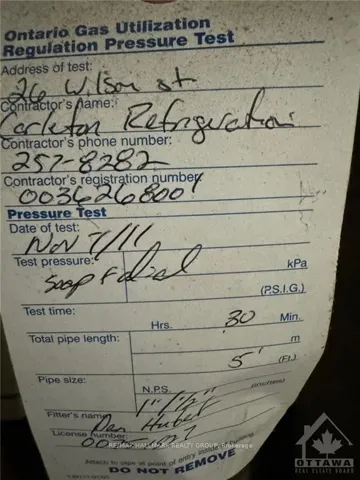 Ontario Gas Utilization
Regulation Pressure Test
Address of test:
26 Wilson st
Contractor's name:
Carleton Refrigeration
Contractor's phone number:
257-8282
Contractor's registration number
0036268001
Pressure Test
Date of test:
Nov 7/11
Test pressure: kPa
Soap (P.S.I.G.)
Test time: Hrs. 30 Min.
Total pipe length: m
5' (Ft.)
Pipe size: N.P.S.
1" 1/2"
Fitter's name
Dan Hubert
License number:
Attach to pipe at point of entry
DO NOT REMOVE
RE/MAX HALLMARK REALTY GROUP, Brokerage
OTTAWA
REAL ESTATE BOARD